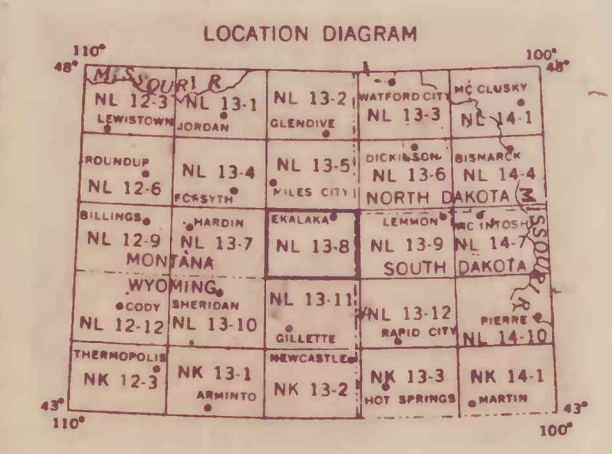 LOCATION DIAGRAM
110°
100°
48°
48°
MISSOURI R
NL 12-3
LEWISTOWN
NL 13-1
JORDAN
NL 13-2
GLENDIVE
WATFORD CITY
NL 13-3
MC CLUSKY
NL 14-1
ROUNDUP
NL 12-6
NL 13-4
FORSYTH
NL 13-5
MILES CITY
DICKINSON
NL 13-6
BISMARCK
NL 14-4
NORTH DAKOTA
BILLINGS
NL 12-9
HARDIN
NL 13-7
MONTANA
EKALAKA
NL 13-8
LEMMON
NL 13-9
MC INTOSH
NL 14-7
SOUTH DAKOTA
MISSOURI R
WYOMING
CODY
NL 12-12
SHERIDAN
NL 13-10
NL 13-11
GILLETTE
NL 13-12
RAPID CITY
PIERRE
NL 14-10
THERMOPOLIS
NK 12-3
NK 13-1
ARMINTO
NEWCASTLE
NK 13-2
NK 13-3
HOT SPRINGS
NK 14-1
MARTIN
43°
43°
110°
100°